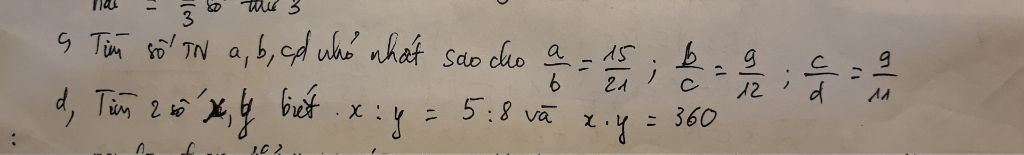 hai = 3/3 số thứ 3
c, Tìm số TN a, b, c, d nhỏ nhất sao cho a/b = 15/21 ; b/c = 9/12 ; c/d = 9/11
d, Tìm 2 số x, y biết . x : y = 5 : 8 và x . y = 360